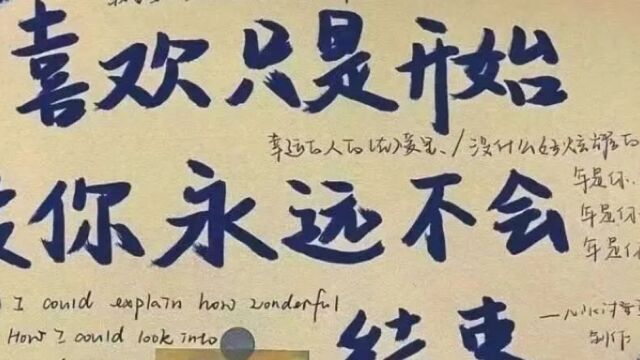 喜欢只是开始
幸运的人的
没什么好炫耀的
你永远不会
年是你
年是你
年是你
I could explain how wonderful
How I could look into
结束